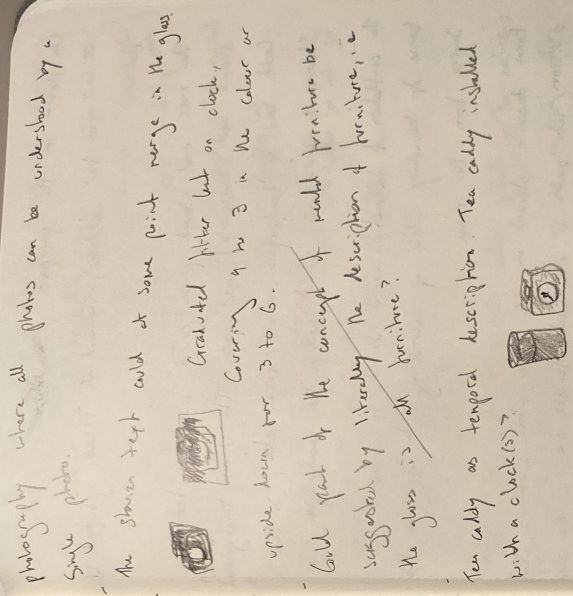 photography where all photos can be understood by a
single photo.
- The stanza text could at some point merge in the glass.
Graduated filter lent on clock,
Covering 9 to 3 in the colour or
upside down for 3 to 6.
- Could part of the concept of mental furniture be
suggested by literally the description of furniture, i.e
the glass is all furniture?
- Tea caddy as temporal description. Tea caddy installed
with a clock(s)?